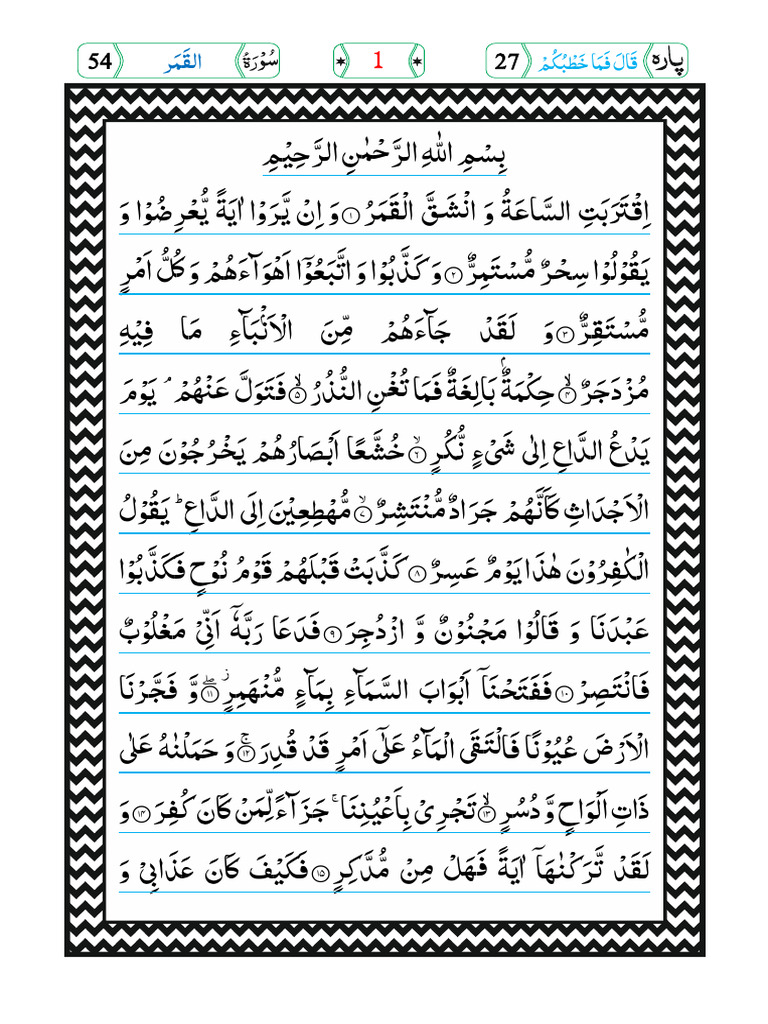 پارہ 27 قَالَ فَمَا خَطْبُكُمْ 1 سُوْرَۃُ القَمَر 54
بِسْمِ اللّٰهِ الرَّحْمٰنِ الرَّحِيْمِ
اِقْتَرَبَتِ السَّاعَةُ وَ انْشَقَّ الْقَمَرُ ۝۱ وَ اِنْ يَّرَوْا اٰيَةً يُّعْرِضُوْا وَ
يَقُوْلُوْا سِحْرٌ مُّسْتَمِرٌّ ۝۲ وَ كَذَّبُوْا وَ اتَّبَعُوْۤا اَهْوَآءَهُمْ وَ كُلُّ اَمْرٍ
مُّسْتَقِرٌّ ۝۳ وَ لَقَدْ جَآءَهُمْ مِّنَ الْاَنْۢبَآءِ مَا فِيْهِ
مُزْدَجَرٌ ۝۴ۙ حِكْمَةٌۢ بَالِغَةٌ فَمَا تُغْنِ النُّذُرُ ۝۵ۙ فَتَوَلَّ عَنْهُمْ ۘ يَوْمَ
يَدْعُ الدَّاعِ اِلٰى شَیْءٍ نُّكُرٍ ۝۶ۙ خُشَّعًا اَبْصَارُهُمْ يَخْرُجُوْنَ مِنَ
الْاَجْدَاثِ كَاَنَّهُمْ جَرَادٌ مُّنْتَشِرٌ ۝۷ۙ مُّهْطِعِيْنَ اِلَى الدَّاعِ ؕ يَقُوْلُ
الْكٰفِرُوْنَ هٰذَا يَوْمٌ عَسِرٌ ۝۸ كَذَّبَتْ قَبْلَهُمْ قَوْمُ نُوْحٍ فَكَذَّبُوْا
عَبْدَنَا وَ قَالُوْا مَجْنُوْنٌ وَّ ازْدُجِرَ ۝۹ فَدَعَا رَبَّهٗۤ اَنِّیْ مَغْلُوْبٌ
فَانْتَصِرْ ۝۱۰ فَفَتَحْنَاۤ اَبْوَابَ السَّمَآءِ بِمَآءٍ مُّنْهَمِرٍ ۝۱۱ؗۖ وَّ فَجَّرْنَا
الْاَرْضَ عُيُوْنًا فَالْتَقَى الْمَآءُ عَلٰۤى اَمْرٍ قَدْ قُدِرَ ۝۱۲ۚ وَ حَمَلْنٰهُ عَلٰى
ذَاتِ اَلْوَاحٍ وَّ دُسُرٍ ۝۱۳ۙ تَجْرِیْ بِاَعْيُنِنَا ۚ جَزَآءً لِّمَنْ كَانَ كُفِرَ ۝۱۴ وَ
لَقَدْ تَّرَكْنٰهَاۤ اٰيَةً فَهَلْ مِنْ مُّدَّكِرٍ ۝۱۵ فَكَيْفَ كَانَ عَذَابِیْ وَ